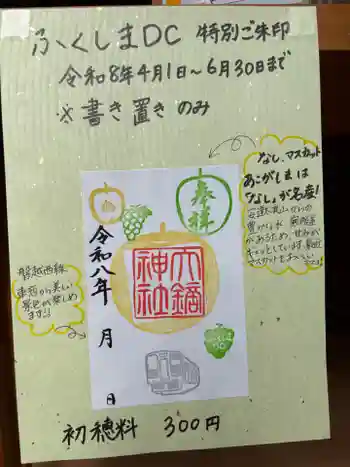 ふくしまDC 特別ご朱印
令和8年4月1日～6月30日まで
※書き置きのみ
なし、マスカット
あこがしまは
「なし」が名産!
奉拝
令和八年
月
日
大鏑
神社
磐越西線
車窓から美しい
景色が楽しめ
ます!!
初穂料 300円